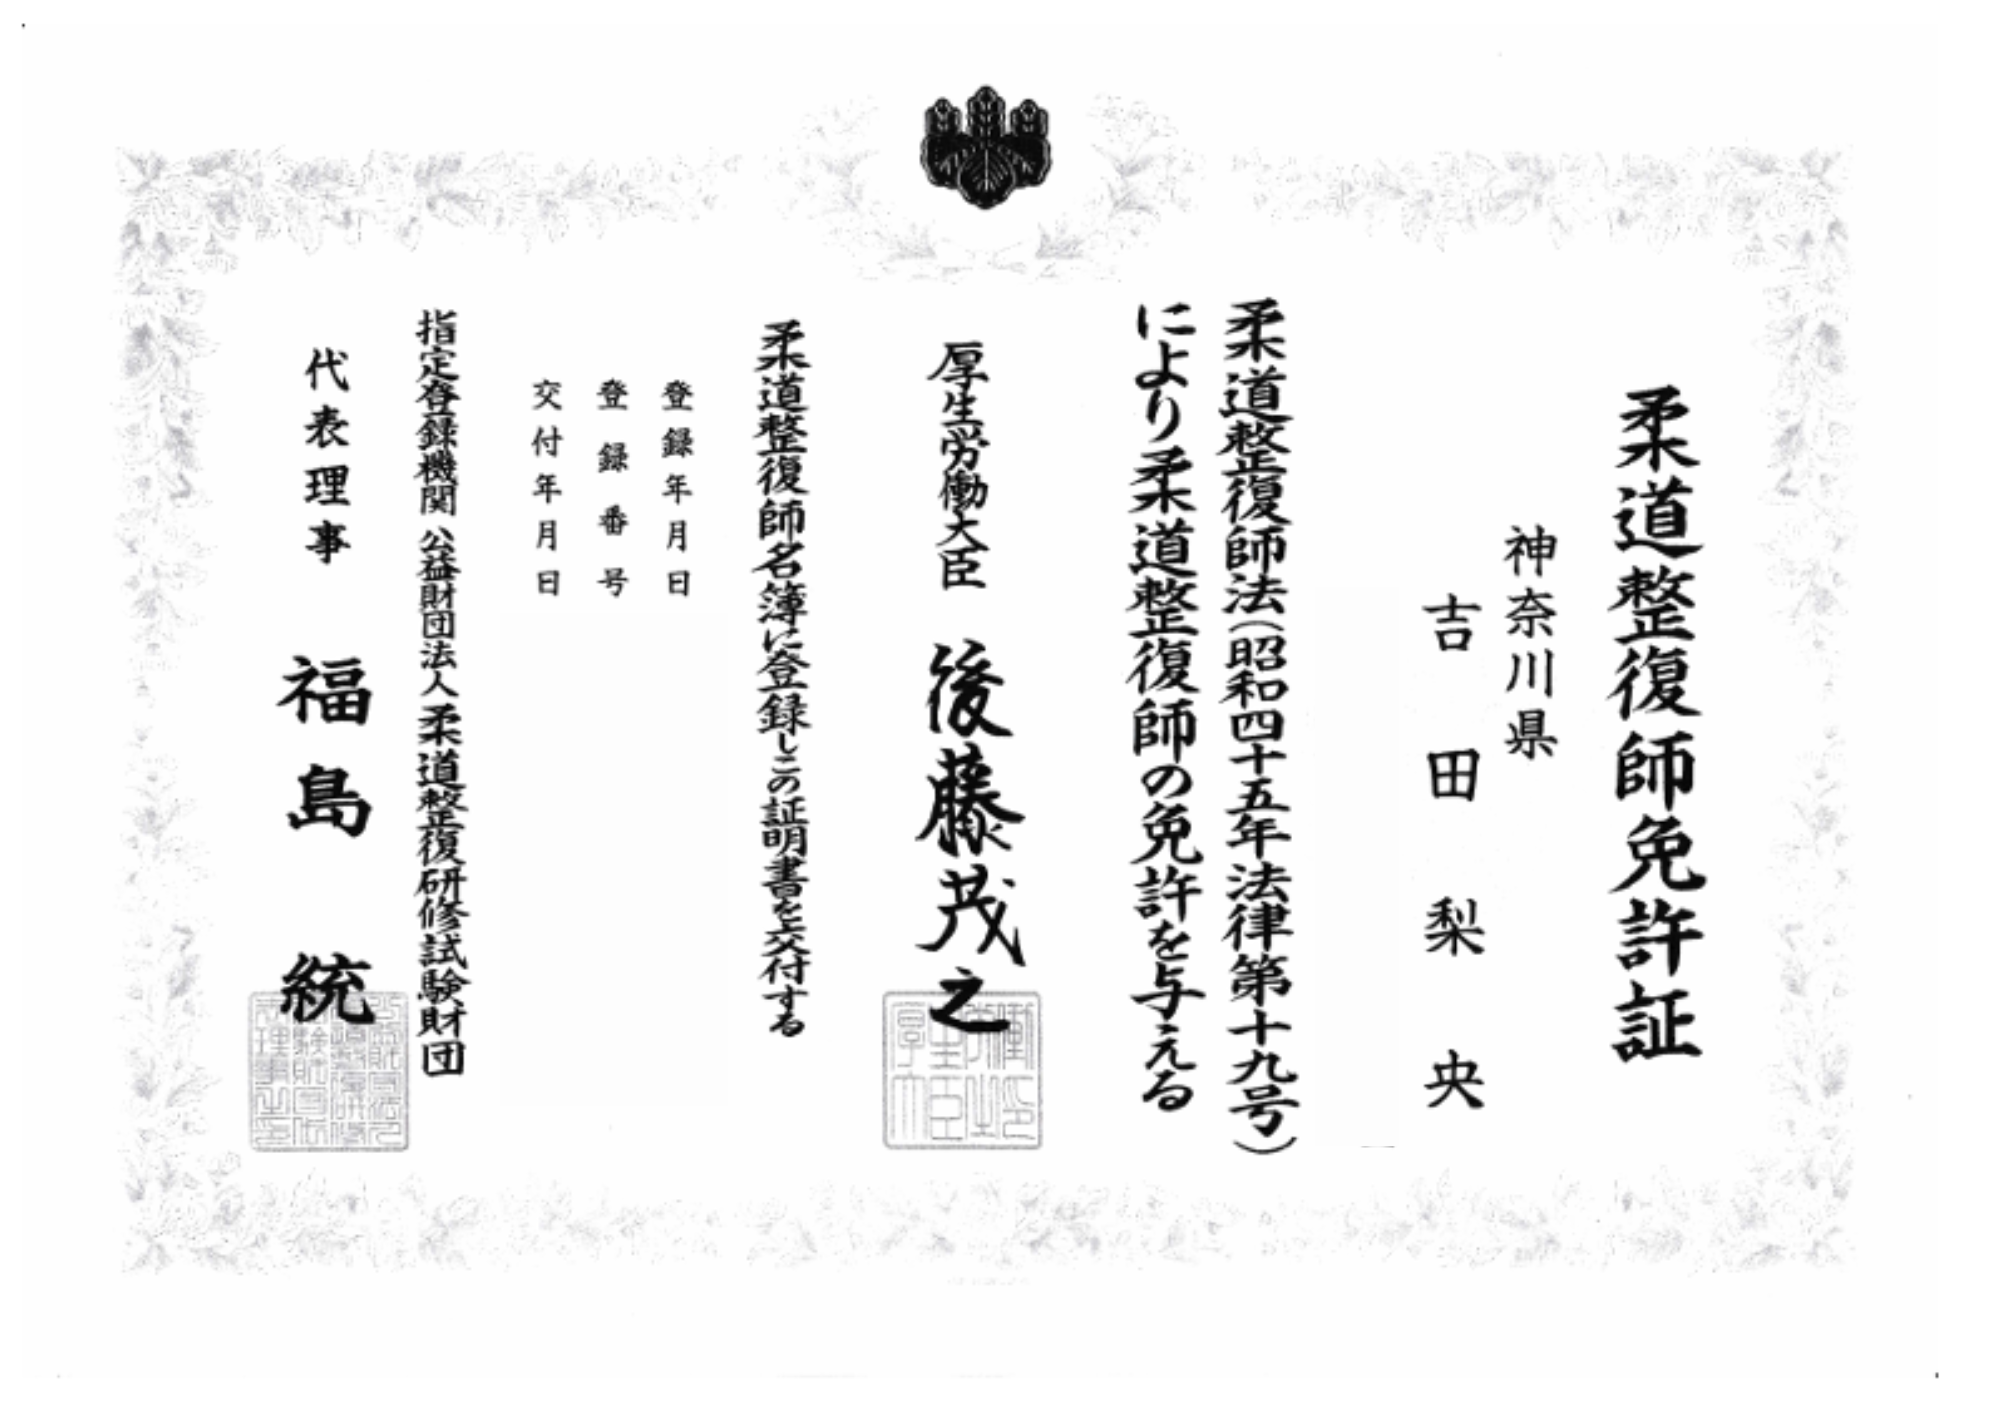 柔道整復師免許証
神奈川県
吉田梨央
柔道整復師法(昭和四十五年法律第十九号)
により柔道整復師の免許を与える
厚生労働大臣 後藤茂之
柔道整復師名簿に登録しこの証明書を交付する
登録年月日
登録番号
交付年月日
指定登録機関 公益財団法人柔道整復研修試験財団
代表理事 福島統